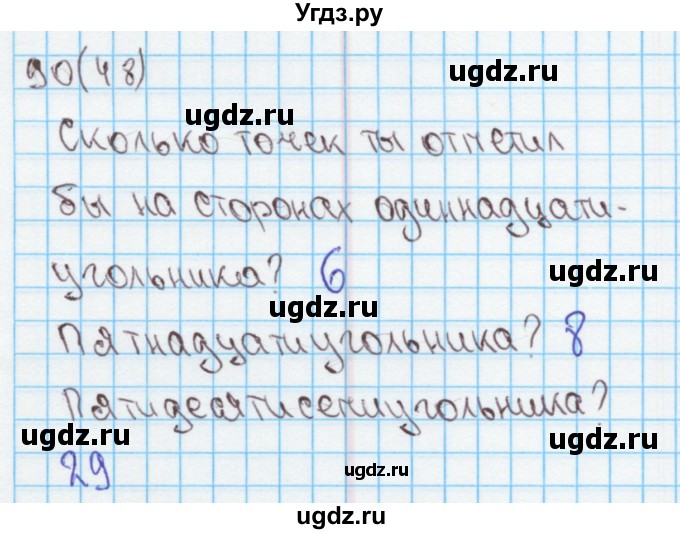 Угдз.ру
90(48)
ugdz.ru
ugdz.ru
Сколько точек ты отметил
бы на сторонах одиннадцати-
угольника? 6
ugdz.ru
ugdz.ru
Пятнадцатиугольника? 8
Пятидесятисемиугольника?
ugdz.ru
ugdz.ru
29
ugdz.ru
ugdz.ru